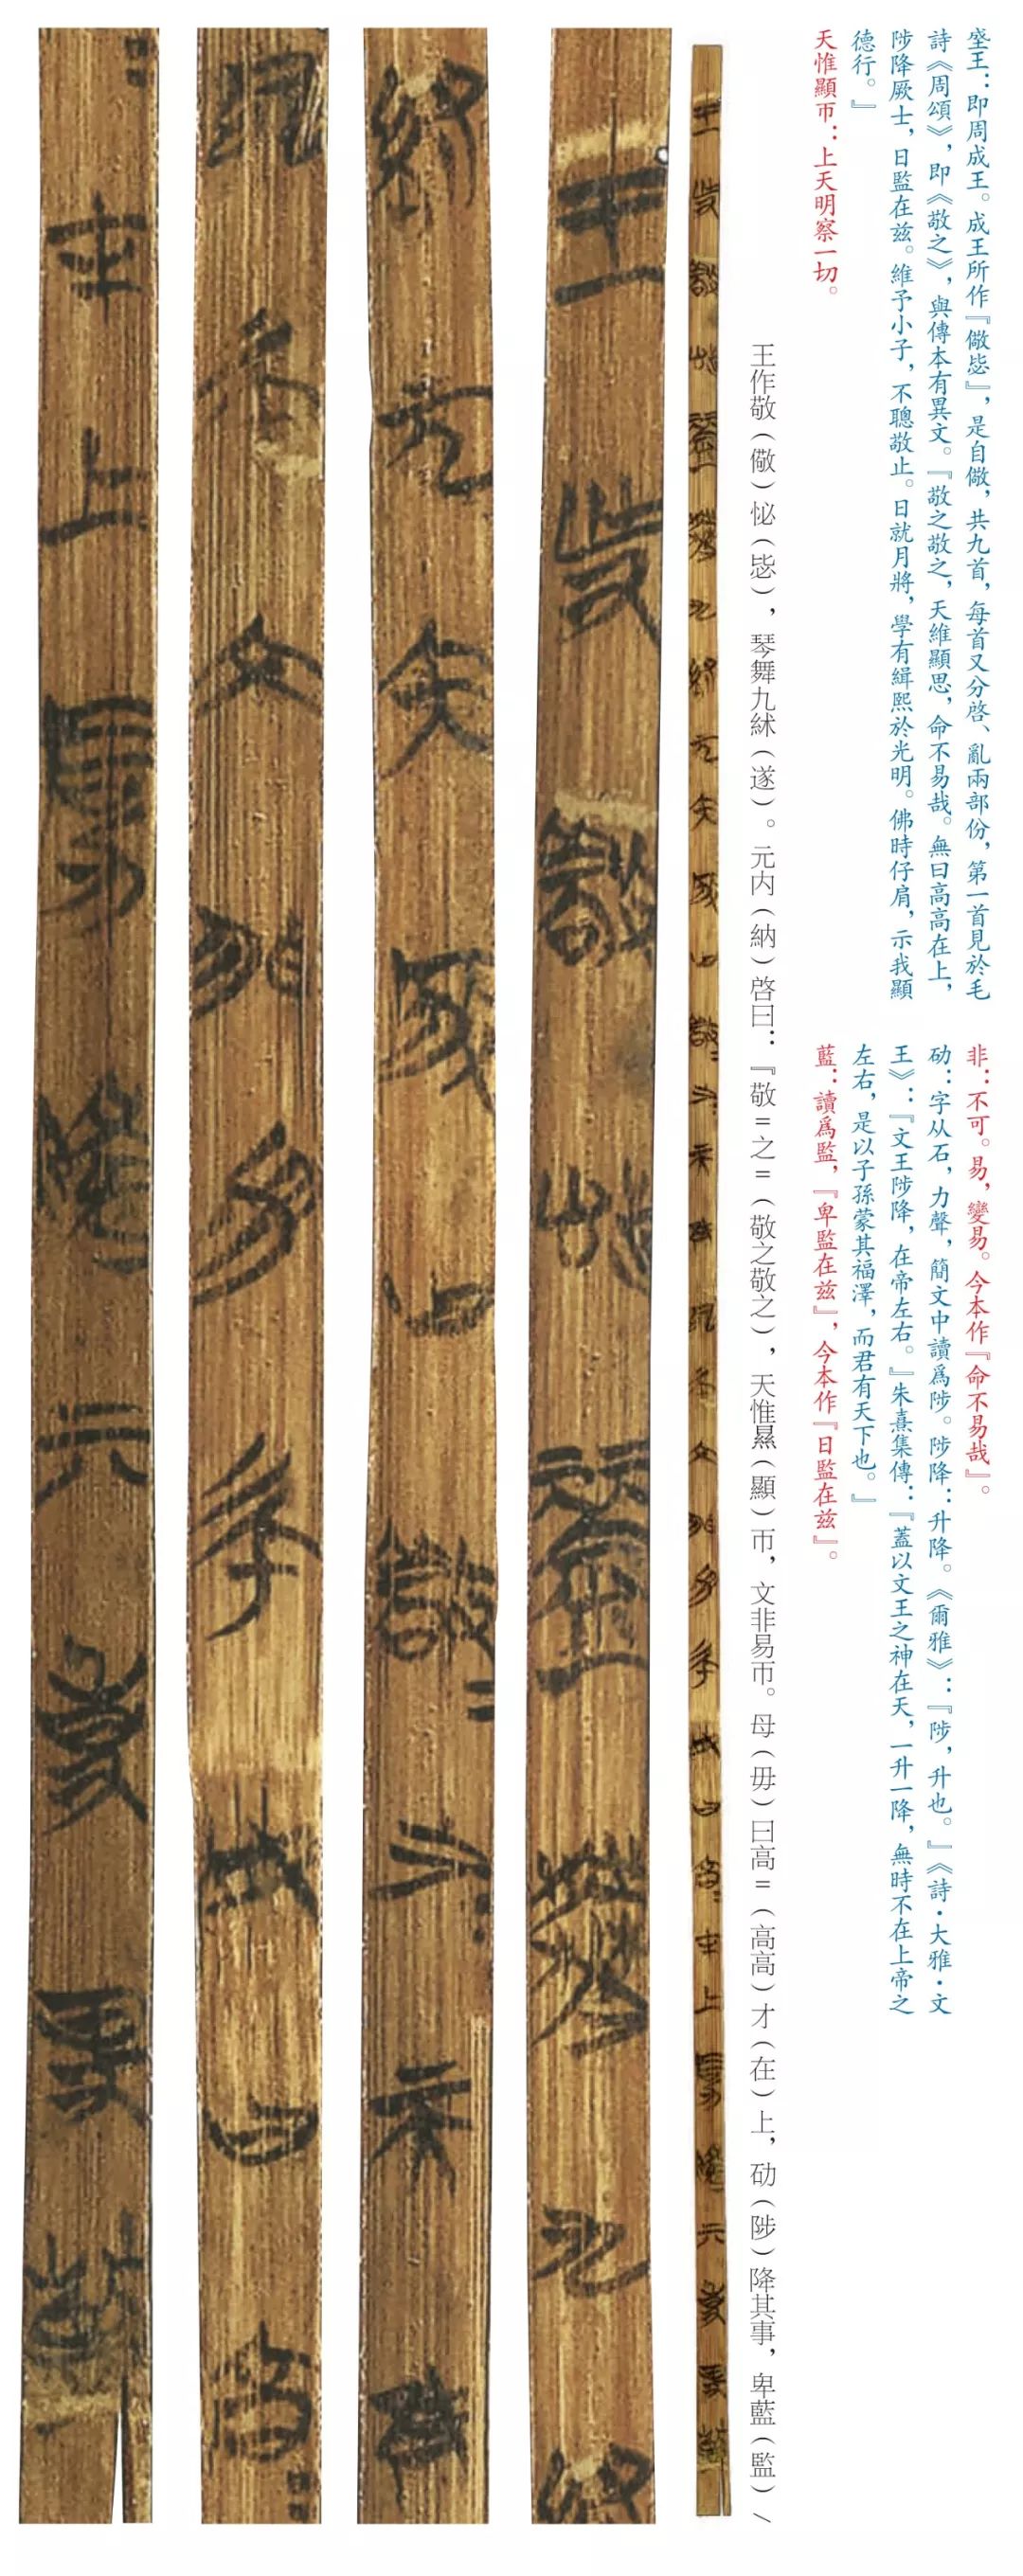 坕王：即周成王。成王所作『儆毖』，是自儆，共九首，每首又分啓、亂兩部份，第一首見於毛
詩《周頌》，即《敬之》，與傳本有異文。『敬之敬之，天維顯思，命不易哉。無曰高高在上，
陟降厥士，日監在兹。維予小子，不聰敬止。日就月將，學有緝熙於光明。佛時仔肩，示我顯
德行。』
天惟顯帀：上天明察一切。
非：不可。易，變易。今本作『命不易哉』。
砀：字从石，力聲，簡文中讀爲陟。陟降：升降。《爾雅》：『陟，升也。』《詩·大雅·文
王》：『文王陟降，在帝左右。』朱熹集傳：『蓋以文王之神在天，一升一降，無時不在上帝之
左右，是以子孫蒙其福澤，而君有天下也。』
藍：讀爲監，『卑監在兹』，今本作『日監在兹』。
王作敬（儆）怭（毖），琴舞九絉（遂）。元内（納）啓曰：『敬=之=（敬之敬之），天惟㬎（顯）帀，文非易帀。母（毋）曰高=（高高）才（在）上，劯（陟）降其事，卑藍（監）/